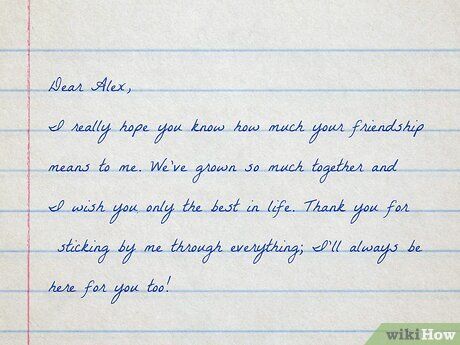 Dear Alex,
I really hope you know how much your friendship
means to me. We've grown so much together and
I wish you only the best in life. Thank you for
sticking by me through everything; I'll always be
here for you too!
wikiHow